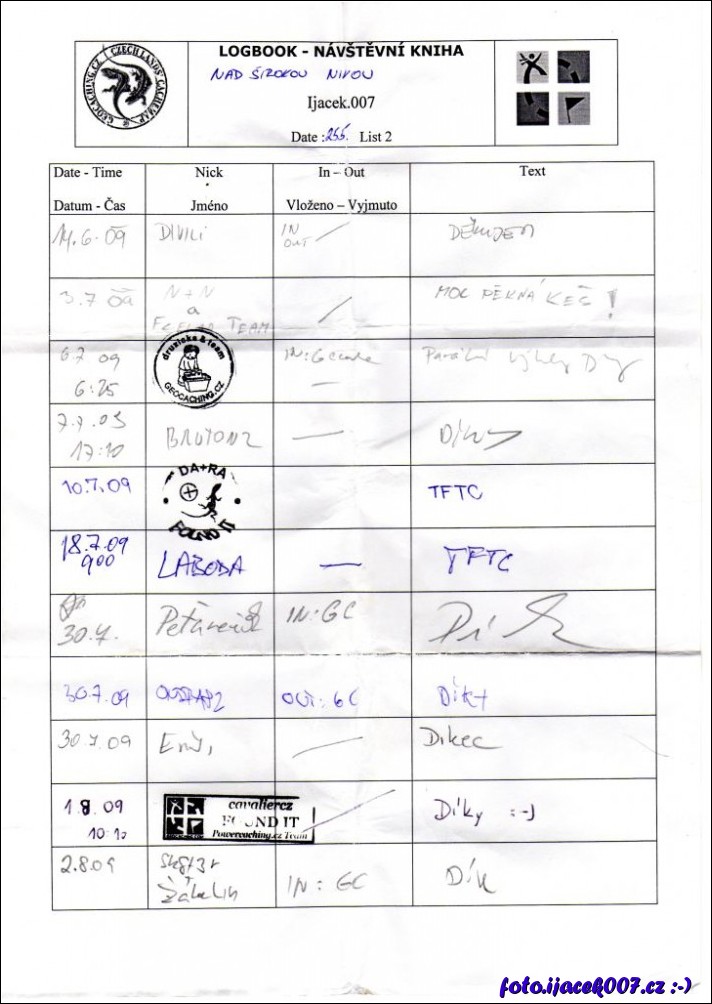 GEOCACHING.CZ CZECH LANDS' CACHE MAP
LOGBOOK - NÁVŠTĚVNÍ KNIHA
NAD ŠIROKOU NIVOU
Ijacek.007
Date : 255. List 2
Date - Time Nick In – Out Text
Datum - Čas Jméno Vloženo – Vyjmuto
14.6.09 DIVILI IN OUT DĚKUJEM
3.7 09 N+N a TEAM MOC PĚKNÁ KEŠ!
6.7 09 druzicka & team IN: GC
6:25 GEOCACHING.CZ —
7.7.09
17:10 BRUTON2 — Díky
10.7.09 DA+RA FOUND IT TFTC
18.7.09
900 LABODA — TFTC
30.7. IN: GC Dík
30.7.09 OUT: GC Díky
30.7.09 Emy, Dikec
1.8.09 cavaliercz Díky :-)
10:10 FOUND IT
Powercaching.cz Team
2.8.09 IN: GC Dík
foto.ijacek007.cz :-)